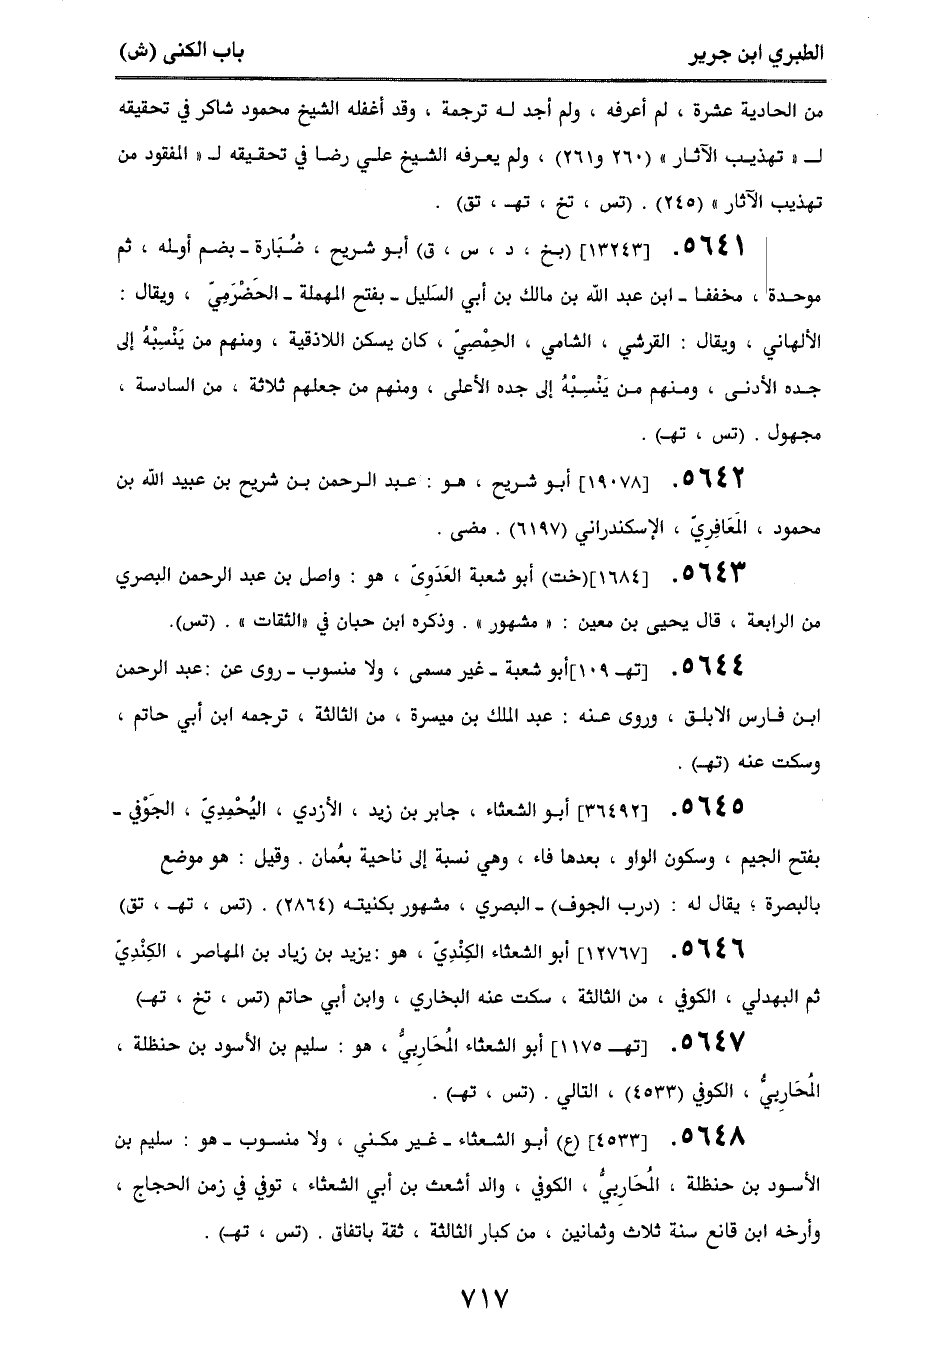 الطبري ابن جرير
باب الكنى (ش)
من الحادية عشرة ، لم أعرفه ، ولم أجد له ترجمة ، وقد أغفله الشيخ محمود شاكر في تحقيقه
لـ « تهذيب الآثار » (٢٦٠ و٢٦١) ، ولم يعرفه الشيخ علي رضا في تحقيقه لـ « المفقود من
تهذيب الآثار » (٢٤٥) . (تس ، تخ ، تهـ ، تق) .
٥٦٤١. [١٣٢٤٣] (بخ ، د ، س ، ق) أبو شريح ، ضُبَارة ـ بضم أوله ، ثم
موحدة ، مخففا ـ ابن عبد الله بن مالك بن أبي السَليل ـ بفتح المهملة ـ الحَضْرَمِيّ ، ويقال :
الألهاني ، ويقال : القرشي ، الشامي ، الحِمْصِيّ ، كان يسكن اللاذقية ، ومنهم من يَنْسِبْهُ إلى
جده الأدنى ، ومنهم من يَنْسِبْهُ إلى جده الأعلى ، ومنهم من جعلهم ثلاثة ، من السادسة ،
مجهول . (تس ، تهـ) .
٥٦٤٢. [١٩٠٧٨] أبو شريح ، هو : عبد الرحمن بن شريح بن عبيد الله بن
محمود ، المَعَافِرِيّ ، الإسكندراني (٦١٩٧) . مضى .
٥٦٤٣. [١٦٨٤](خت) أبو شعبة العَدَوِيّ ، هو : واصل بن عبد الرحمن البصري
من الرابعة ، قال يحيى بن معين : « مشهور » . وذكره ابن حبان في «الثقات » . (تس).
٥٦٤٤. [تهـ ١٠٩]أبو شعبة ـ غير مسمى ، ولا منسوب ـ روى عن :عبد الرحمن
ابن فارس الابلق ، وروى عنه : عبد الملك بن ميسرة ، من الثالثة ، ترجمه ابن أبي حاتم ،
وسكت عنه (تهـ) .
٥٦٤٥. [٣٦٤٩٢] أبو الشعثاء ، جابر بن زيد ، الأزدي ، اليُحْمِدِيّ ، الجَوْفي ـ
بفتح الجيم ، وسكون الواو ، بعدها فاء ، وهي نسبة إلى ناحية بعُمان . وقيل : هو موضع
بالبصرة ؛ يقال له : (درب الجوف) ـ البصري ، مشهور بكنيته (٢٨٦٤) . (تس ، تهـ ، تق)
٥٦٤٦. [١٢٧٦٧] أبو الشعثاء الكِنْدِيّ ، هو :يزيد بن زياد بن المهاصر ، الكِنْدِيّ
ثم البهدلي ، الكوفي ، من الثالثة ، سكت عنه البخاري ، وابن أبي حاتم (تس ، تخ ، تهـ)
٥٦٤٧. [تهـ ١١٧٥] أبو الشعثاء المُحَاربيُّ ، هو : سليم بن الأسود بن حنظلة ،
المُحَاربيُّ ، الكوفي (٤٥٣٣) ، التالي . (تس ، تهـ) .
٥٦٤٨. [٤٥٣٣] (ع) أبو الشعثاء ـ غير مكني ، ولا منسوب ـ هو : سليم بن
الأسود بن حنظلة ، المُحَاربيُّ ، الكوفي ، والد أشعث بن أبي الشعثاء ، توفي في زمن الحجاج ،
وأرخه ابن قانع سنة ثلاث وثمانين ، من كبار الثالثة ، ثقة باتفاق . (تس ، تهـ) .
٧١٧